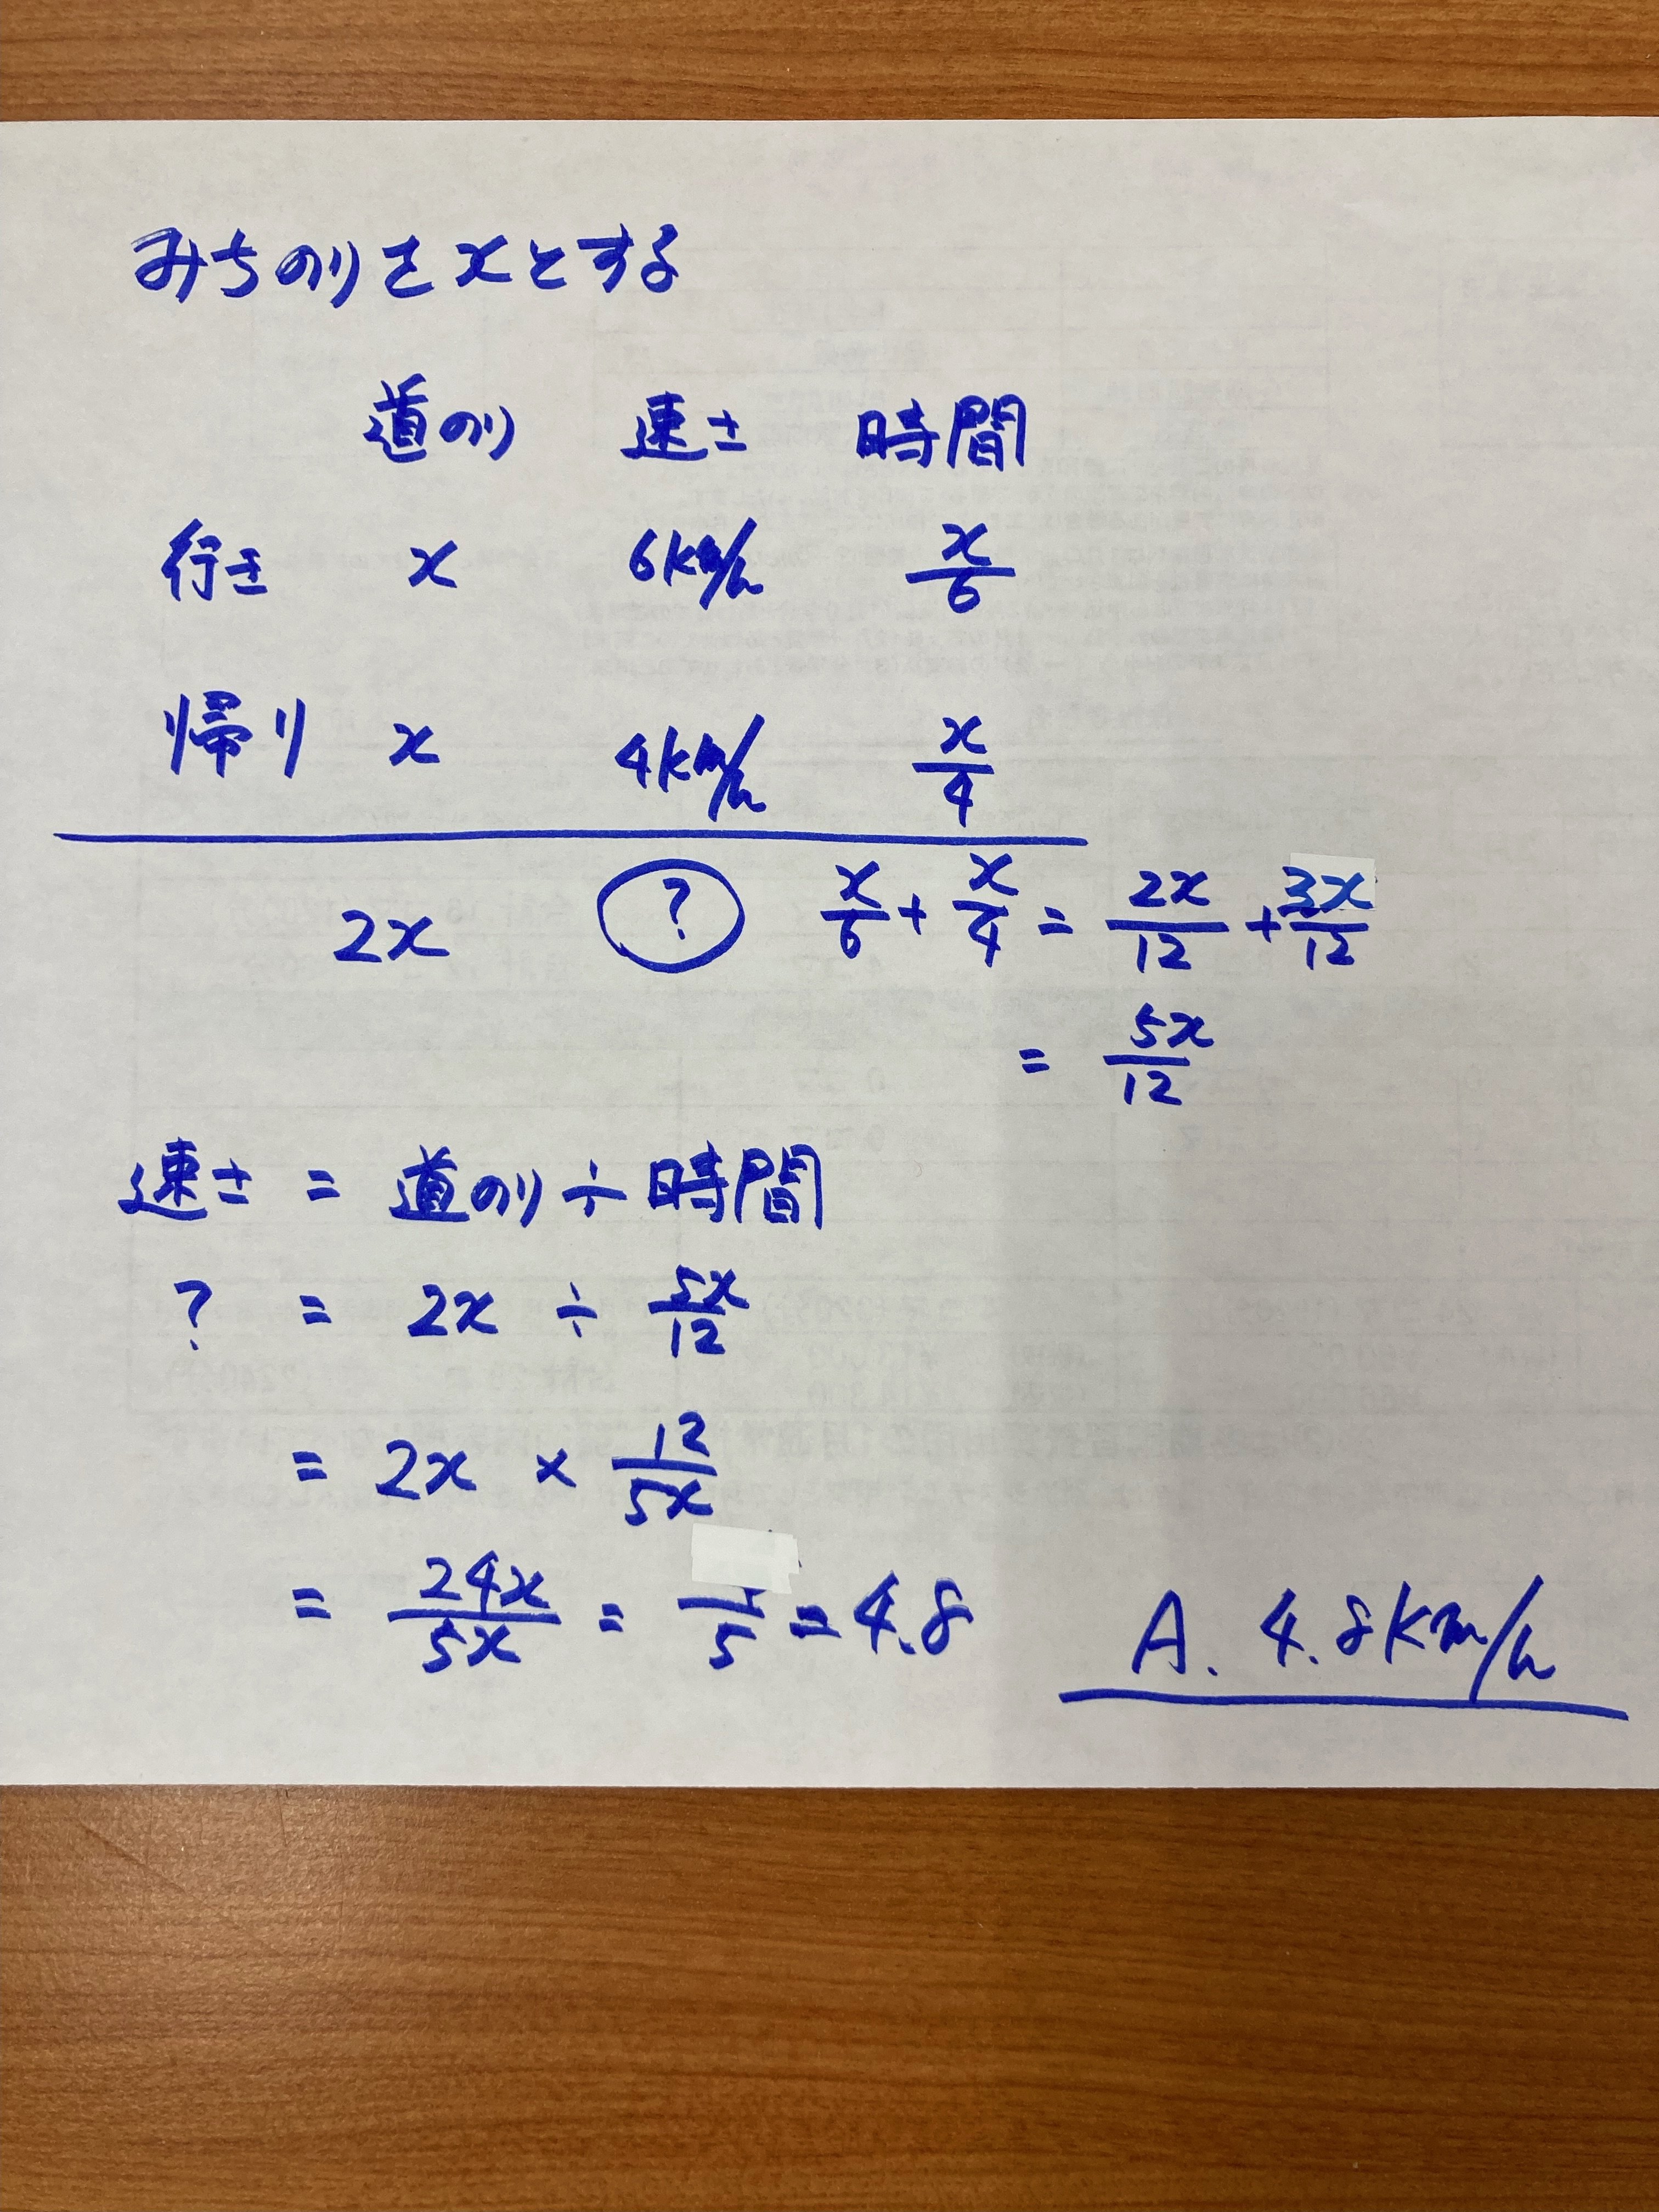 みちのりを xとする
道のり 速さ 時間
行き x 6km/h x/6
帰り x 4km/h x/4
2x ? x/6 + x/4 = 2x/12 + 3x/12
= 5x/12
速さ = 道のり ÷ 時間
? = 2x ÷ 5x/12
= 2x × 12/5x
= 24x/5x = /5 = 4.8
A. 4.8km/h